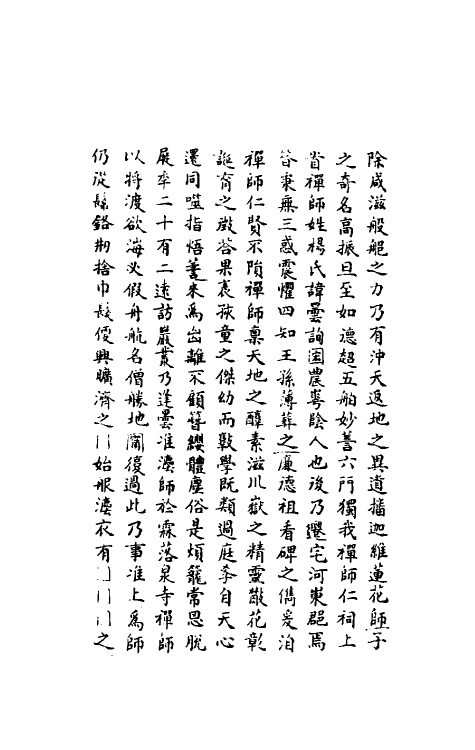 除咸滋般䑽之力乃有沖天返地之異道播迦維蓮花師子
之奇名高振旦至如德超五舶妙善六門獨我禪師仁祠上
首禪師姓楊氏諱曇詢囯農𠌶陰人也後乃遷宅河東郡焉
昔秉無三惑震懼四知王孫薄葬之廉德祖看碑之儁爰洎
禪師仁賢不隕禪師稟天地之醇素滋川嶽之精靈散花彰
誕育之徵荅果表孩童之傑幼而斅學既類過庭孝自天心
還同噬指悟蓋來為出離不顧簪纓體塵俗是煩籠常思脫
展年二十有二遠訪巖藂乃逢曇准灋師於霖落泉寺禪師
以將渡欲海必假舟航名僧勝地閫復過此乃事准上為師
仍從鬀鉻捨巾髮便興曠濟之始服灋衣有之